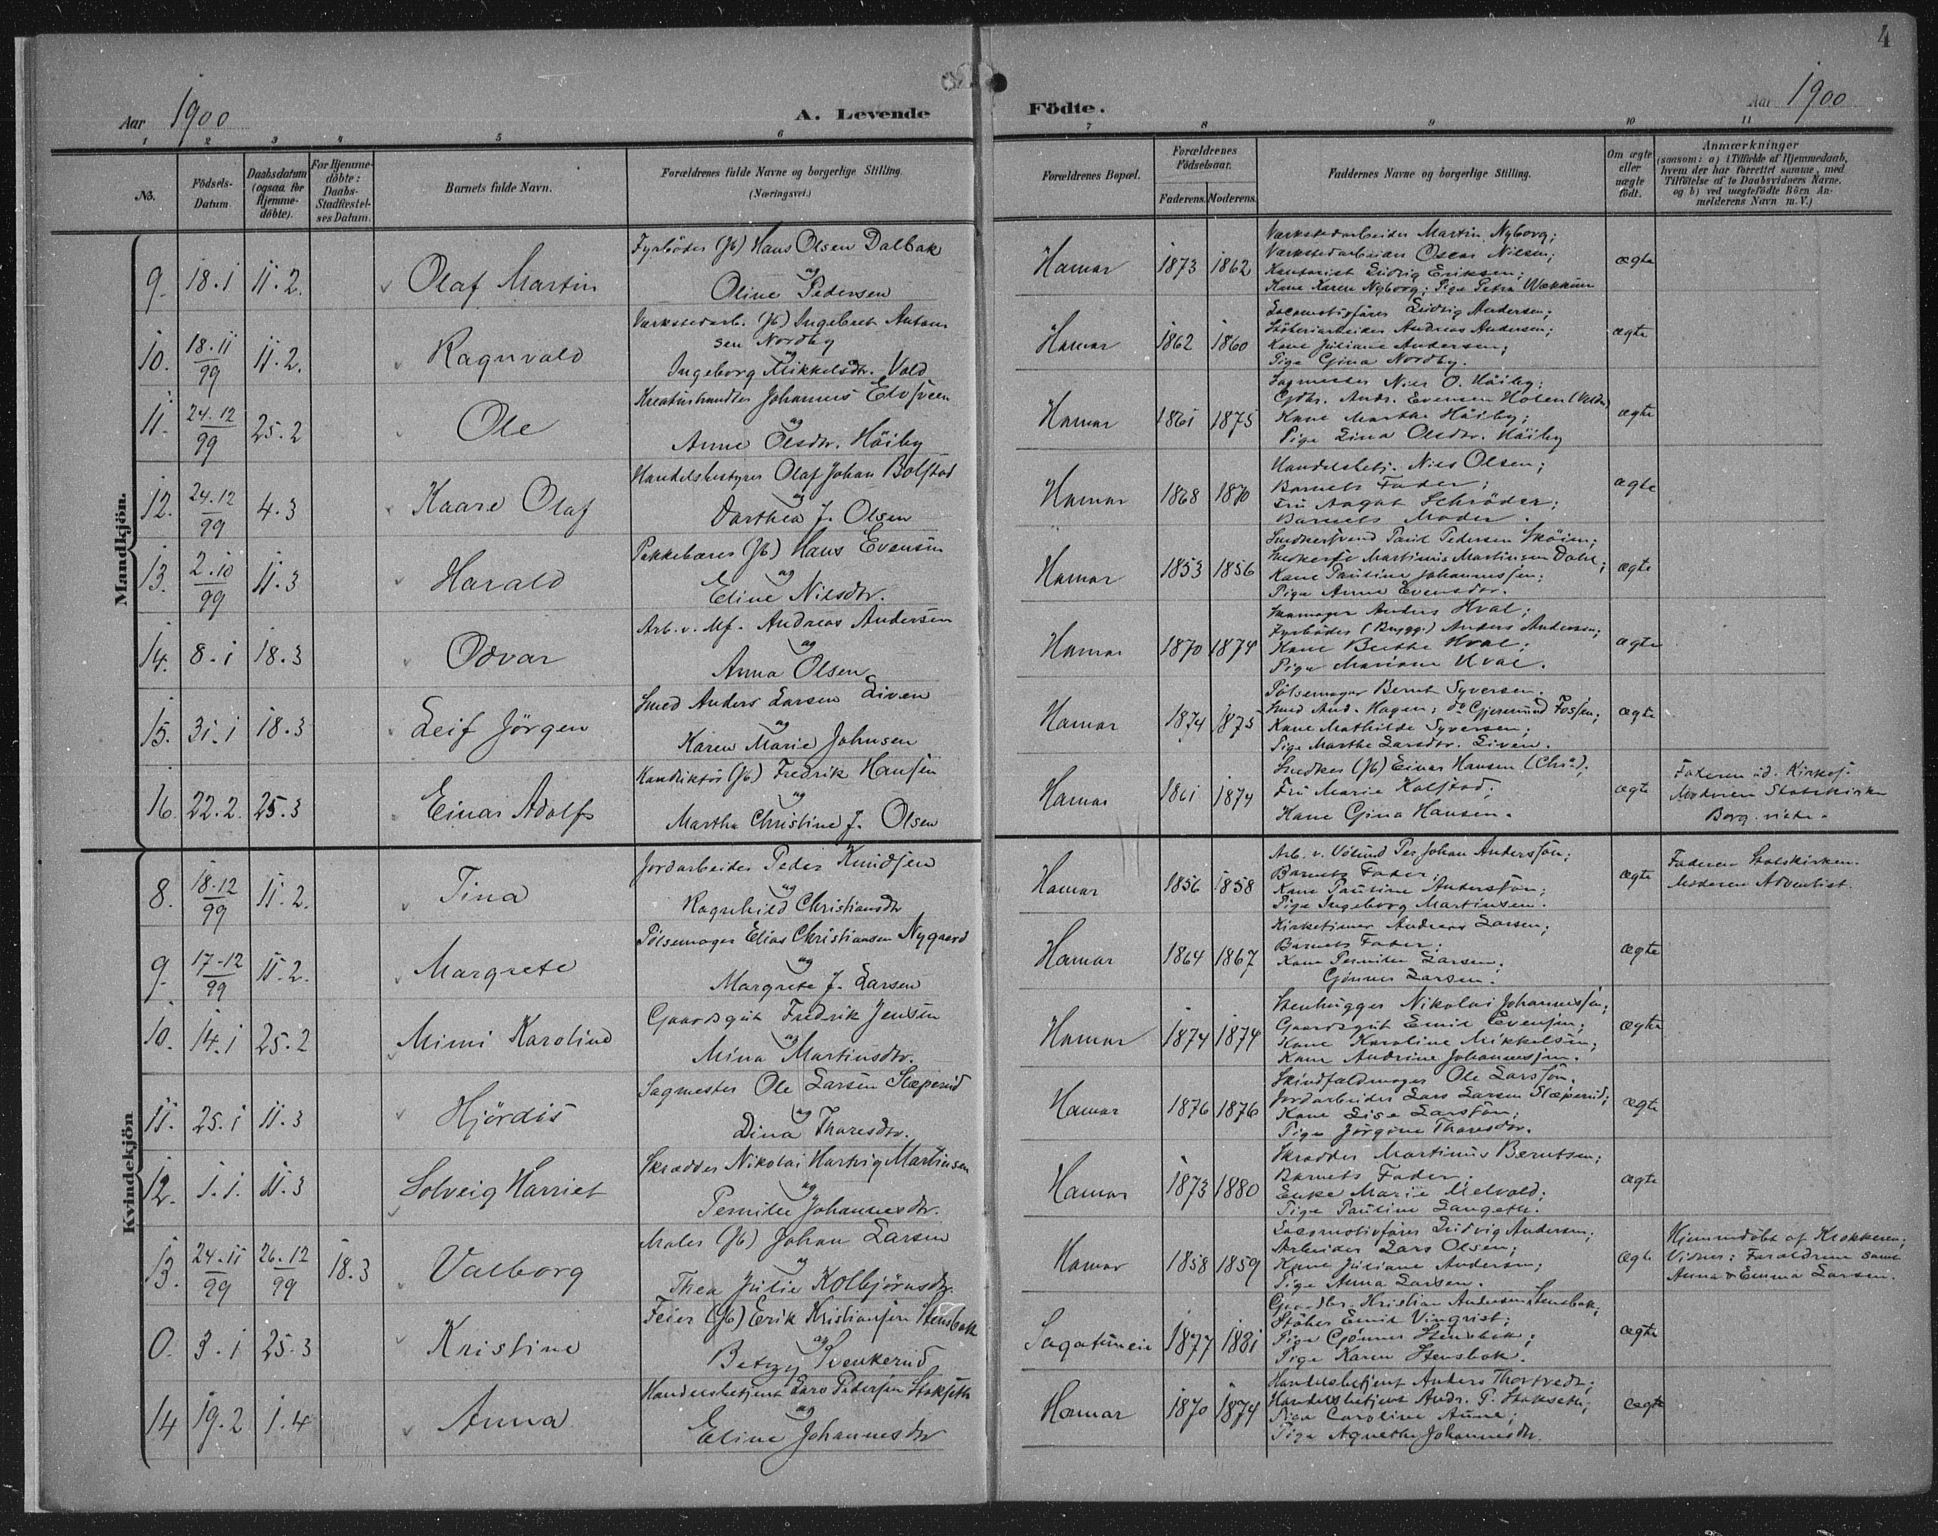 4
Aar 1900
A. Levende
Födte.
Aar 1900
1 2 3 4 5 6 7 8 9 10 11
No.
Födsels-Datum.
Daabsdatum (ogsaa for Hjemme-döbte).
For Hjemme-döbte: Daabs-Stadfæstel-ses Datum.
Barnets fulde Navn.
Forældrenes fulde Navne og borgerlige Stilling.
(Næringsvei.)
Forældrenes Bopæl.
Forældrenes Födselsaar.
Faderens. Moderens.
Faddernes Navne og borgerlige Stilling.
Om ægte eller uægte födt.
Anmærkninger
(saasom: a) i Tilfælde af Hjemmedaab,
hvem der har forrettet samme, med
Tilföielse af to Daabsvidners Navne,
og b) ved uægtefödte Börn An-
melderens Navn m. V.)
Mandkjön.
9. 18.1 11.2. Olaf Martin
Fyrböder (Jb) Hans Olsen Dalbak
og
Oline Pedersen
Hamar 1873 1862
Værkstedarbeider Martin Nyborg;
Værkstedarbeider Oscar Nilsen;
Kontorist Ludvig Eriksen;
Kone Karen Nyborg; Pige Petra
ægte
10. 18.11 99 11.2. Ragnvald
Værkstedarb. (Jb) Ingebret Anton
sen Nordby
og
Ingeborg Mikkelsdtr. Vold
Hamar 1862 1860
Locomotivförer Ludvig Andersen;
Andreas Andersen;
Kone Juliane Andersen;
Pige Gina Nordby.
ægte
11. 24.12 99 25.2 Ole
Kreaturhandler Johannes
og
Anne Olsdtr. Höiby
Hamar 1861 1875
Sagmester Nils O. Höiby;
Gdbr. Andr. Evensen Holen
Kone Marthe Höiby;
Pige Lina Olsdtr. Höiby
ægte
12. 24.12 99 4.3 Kaare Olaf
Handelsbestyrer Olaf Johan Bolstad
og
Dorthea J. Olsen
Hamar 1868 1870
Handelsbetj. Nils Olsen;
Barnets Fader;
Fru Aagot Schröder;
Barnets Moder.
ægte
13. 2.10 99 11.3 Harald
Pakkebærer (Jb) Hans Evensen
og
Eline Nilsdtr.
Hamar 1853 1856
Snedkersvend Paul Pedersen Sköien;
Martinus Martinsen Dahl;
Kone Pauline Johannessen;
Pige Anna Evensdtr.
ægte
14. 8.1 18.3 Odvar
Arb. v. Mf. Andreas Andersen
og
Anna Olsen
Hamar 1870 1874
Skomager Anders Hval;
Fyrböder (Brygg.) Anders Andersen;
Kone Berthe Hval;
Pige Mariane Hval.
ægte
15. 31.1 18.3 Leif Jörgen
Smed Anders Larsen Liven
og
Karen Marie Johnsen
Hamar 1874 1875
Pölsemager Bernt Syversen.
Smed And. Hagen; do Gjermund Fossen;
Kone Mathilde Syversen;
Pige Marthe Larsdtr. Liven.
ægte
16. 22.2. 25.3 Einar Adolf
Konduktör (Jb) Fredrik Hansen
og
Martha Christine J. Olsen
Hamar 1861 1874
Snedker (Jb) Einar Hansen (Chra);
Fru Marie Kolstad;
Kone Gina Hansen.
ægte
Faderen ud. Kirkesf.
Moderen Statskirken
Borg. viede.
Kvindekjön
8. 18.12 99 11.2. Tina
Jordarbeider Peder Knudsen
og
Ragnhild Christiansdtr
Hamar 1856 1858
Arb. v. Völund Per Johan Andersson;
Barnets Fader;
Kone Pauline Andersson;
Pige Ingeborg Martinsen.
ægte
Faderen Statskirken.
Moderen Adventist.
9. 17.12 99 11.2. Margrete
Pölsemager Elias Christiansen Nygaard
og
Margrete J. Larsen
Hamar 1864 1867
Kirketjener Andreas Larsen;
Barnets Fader;
Kone Pernille Larsen;
Gunnar Larsen.
ægte
10. 14.1 25.2 Mimi Karoline
Gaardsgut Fredrik Jensen
og
Mina Martinsdtr.
Hamar 1874 1874
Stenhugger Nikolai Johannessen;
Gaardsgut Emil Evensen;
Kone Karoline Mikkelsen;
Kone Andrine Johannessen.
ægte
11. 25.1 11.3 Hjördis
Sagmester Ole Larsen Slæperud
og
Dina Thoresdtr.
Hamar 1876 1876
Skindfældmager Ole Larsson.
Jordarbeider Lars Larsen Slæperud;
Kone Lise Larsson;
Pige Jörgine Thoresdtr.
ægte
12. 1.1. 11.3 Solveig Harriet
Skrædder Nikolai Hartvig Martinsen
og
Pernille Johannesdtr.
Hamar 1873 1880
Skrædder Martinus Berntsen;
Barnets Fader.
Enke Marie Melvold;
Pige Pauline Langeth.
ægte
13. 24.11 99 26.12 99 18.3 Valborg
Maler (Jb) Johan Larsen
og
Thea Julie Kolbjörnsdtr.
Hamar 1858 1859
Locomotivförer Ludvig Andersen;
Arbeider Lars Olsen;
Kone Juliane Andersen;
Pige Anna Larsen.
ægte
Hjemmedöbt af Klokkeren;
Vidner: Forældrene samt
Anna & Emma Larsen.
0. 3.1 25.3 Kristine
Feier (Jb) Erik Kristiansen Stensbak
og
Betzy Svenkerud
Sagatunveien 1877 1881
Gaardbr. Kristian Andersen Stensbak,
Stöber Emil Vinqvist;
Pige Gunnar Stensbak;
Pige Karen Stensbak.
ægte
14 19.2 1.4 Anna
Handelsbetjent Lars Pedersen Stokseth
og
Eline Johannesdtr
Hamar 1870 1874
Handelsbetjent Anders Thortvedt;
Handelsbetjent Andr. P. Stokseth;
Pige Caroline Aune;
Pige Agnethe Johannesdtr.
ægte